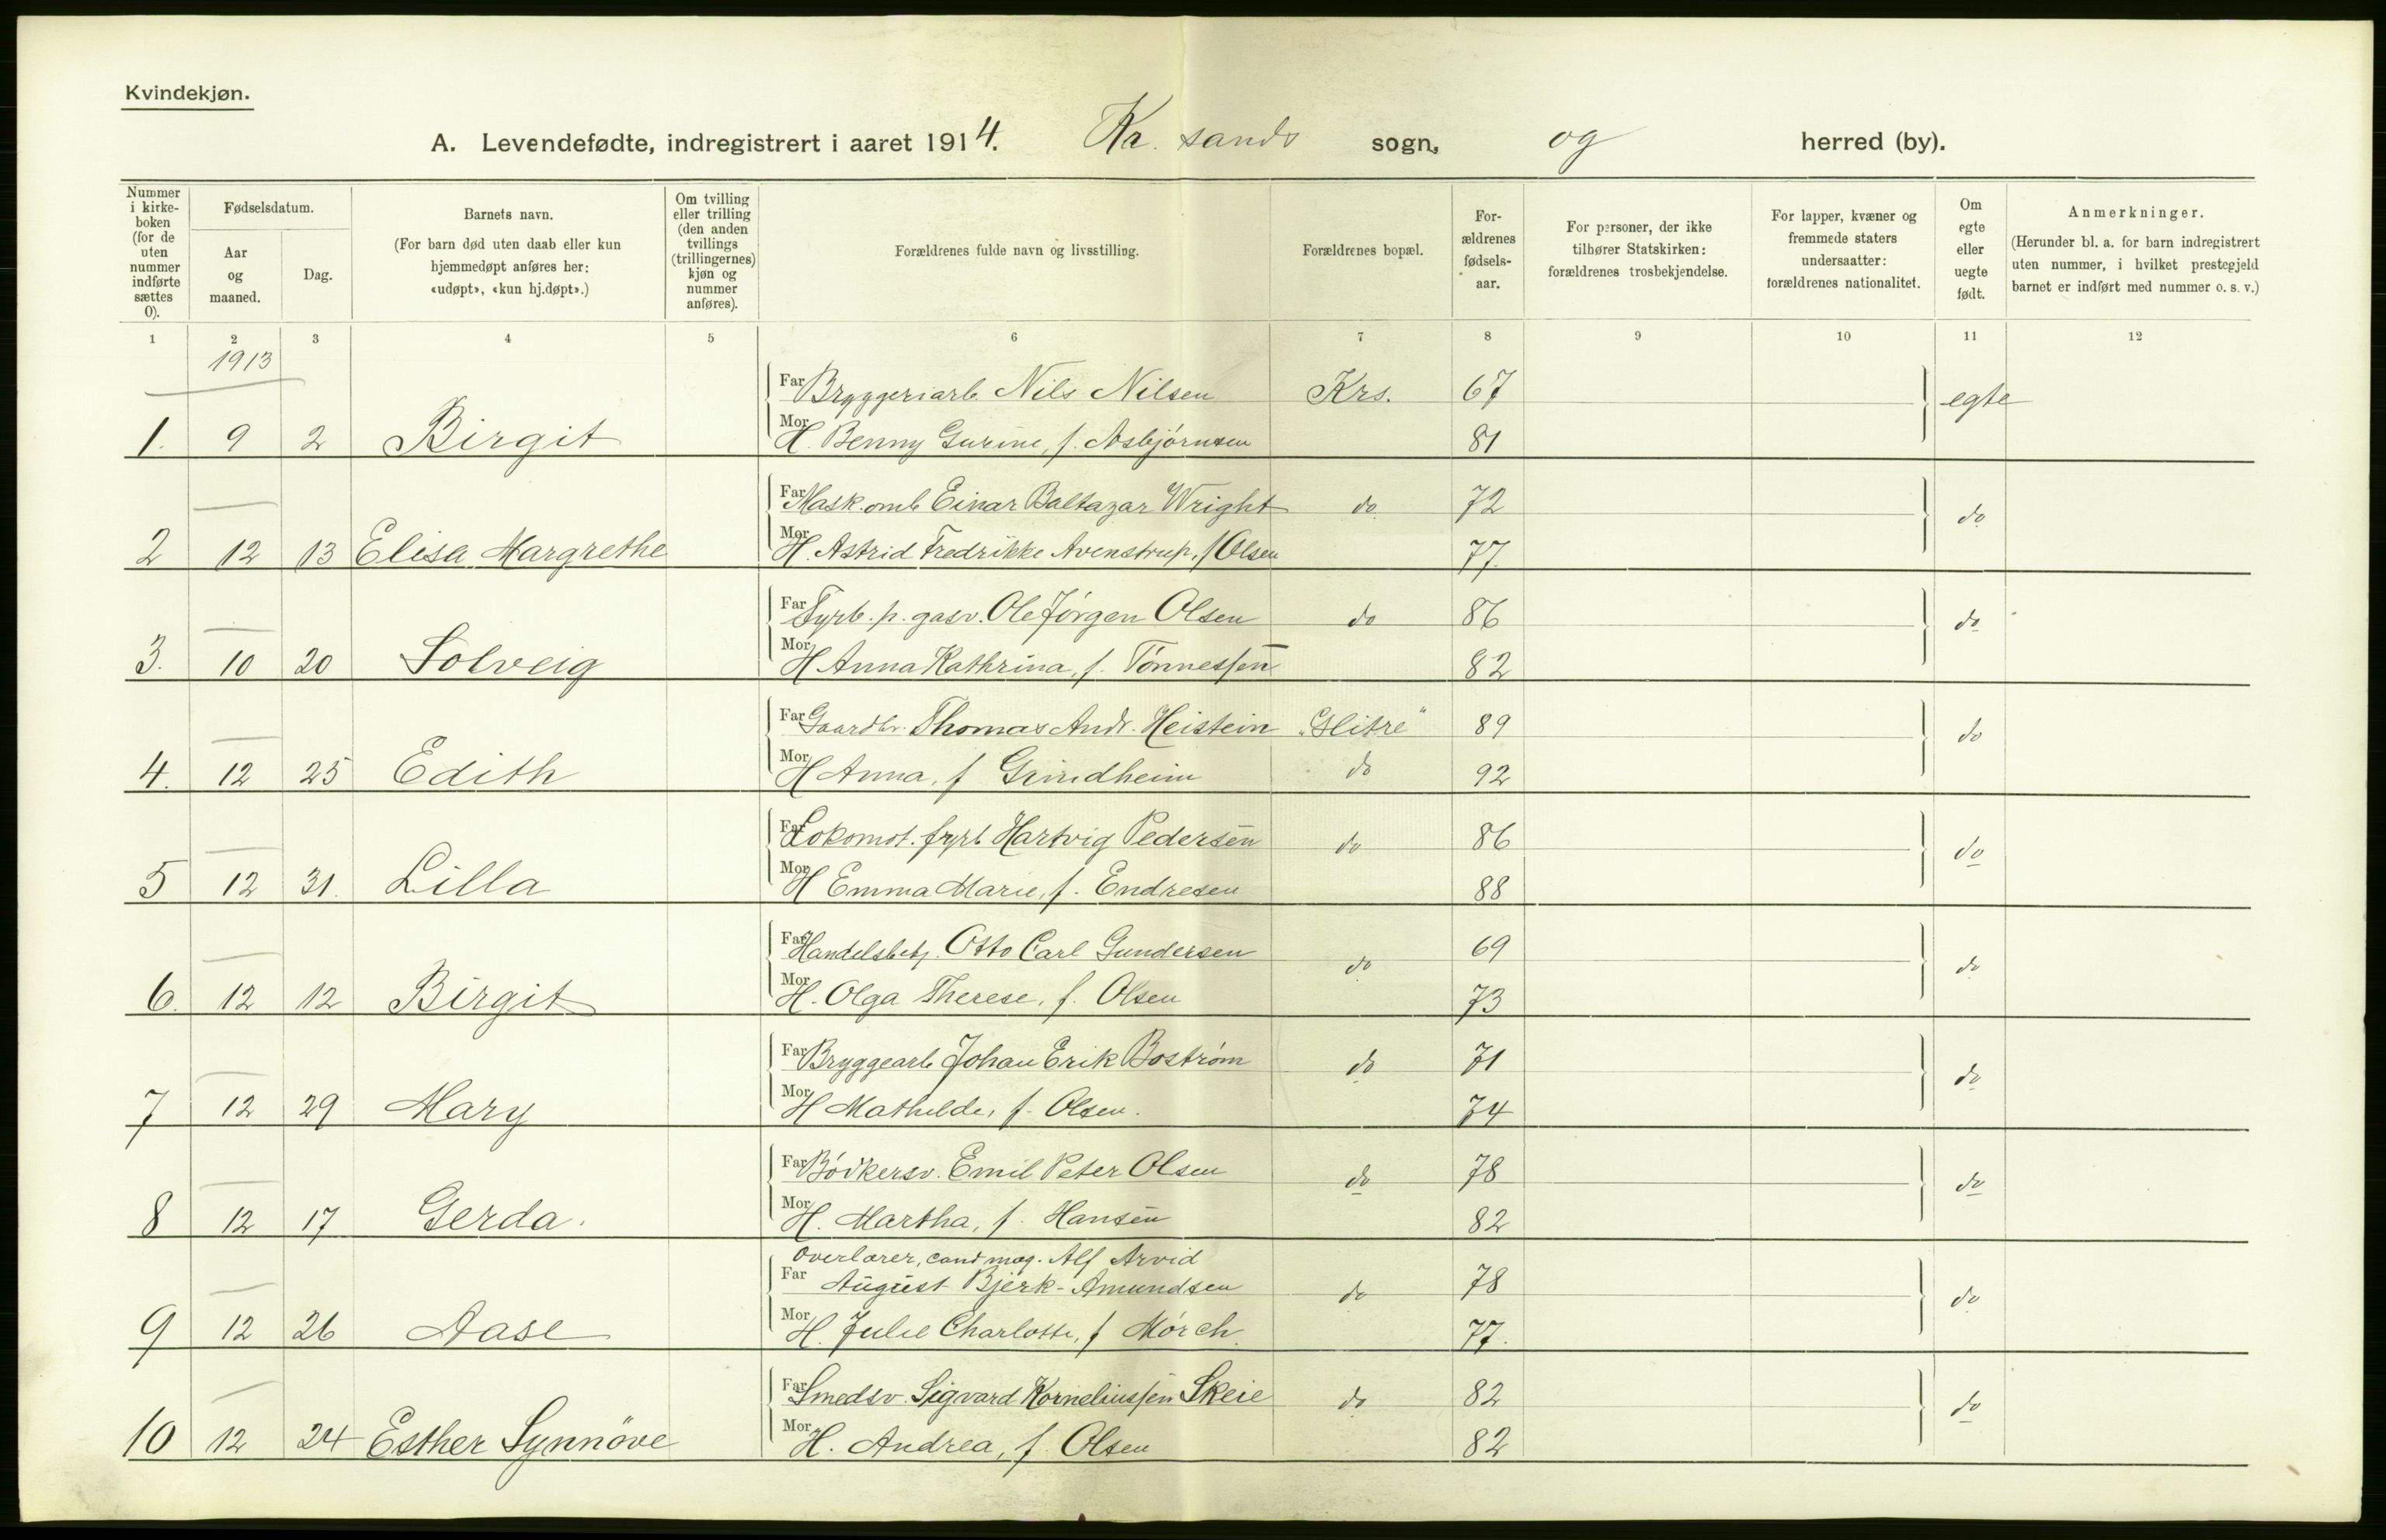 Kvindekjøn.
A. Levendefødte, indregistrert i aaret 1914. Kr. sands sogn, og herred (by).
Nummer i kirke-boken (for de uten nummer indførte sættes 0).
Fødselsdatum.
Aar og maaned.
Dag.
Barnets navn.
(For barn død uten daab eller kun hjemmedøpt anføres her: «udøpt», «kun hj.døpt».)
Om tvilling eller trilling (den anden tvillings (trillingernes) kjøn og nummer anføres).
Forældrenes fulde navn og livsstilling.
Forældrenes bopæl.
For-ældrenes fødsels-aar.
For personer, der ikke tilhører Statskirken: forældrenes trosbekjendelse.
For lapper, kvæner og fremmede staters undersaatter: forældrenes nationalitet.
Om egte eller uegte født.
Anmerkninger.
(Herunder bl. a. for barn indregistrert uten nummer, i hvilket prestegjeld barnet er indført med nummer o. s. v.)
1 2 3 4 5 6 7 8 9 10 11 12
1913
Far Bryggeriarb. Nils Nilsen Krs. 67 egte
1. 9 2 Birgit Mor H. Benny Gurine, f. Asbjørnsen 81
Far Mask.omb Einar Baltazar Wright do 72 do
2 12 13 Elisa Margrethe Mor H. Astrid Fredrikke Avenstrup, f Olsen 77.
Far Fyrb. p. gasv. Ole Jörgen Olsen do 86 do
3. 10 20 Solveig Mor H Anna Kathrina, f. Tönnessen 82
Far Gaardbr. Thomas Andr. Heistein „Glitre" 89 do
4. 12 25 Edith Mor H Anna, f Grindheim do 92
Far Lokomot. fyrb Hartvig Pedersen do 86 do
5 12 31. Lilla Mor H Emma Marie, f. Endresen 88
Far Handelsbetj. Otto Carl Gundersen do 69 do
6. 12 12 Birgit Mor H. Olga Therese, f. Olsen 73
Far Bryggearb Johan Erik Boström do 71 do
7 12 29 Mary Mor H Mathilde, f. Olsen. 74
Far Bödkersv. Emil Peter Olsen do 78 do
8 12 17 Gerda. Mor H. Martha, f. Hansen 82
Overlærer, cand mag. Alf Arvid
Far August Bjerk-Amundsen do 78 do
9 12 26 Aase Mor H. Julie Charlotte, f Mörch. 77.
Far Smedsv. Sigvard Korneliussen Skeie do 82 do
10 12 24 Esther Synnöve Mor H. Andrea, f. Olsen 82